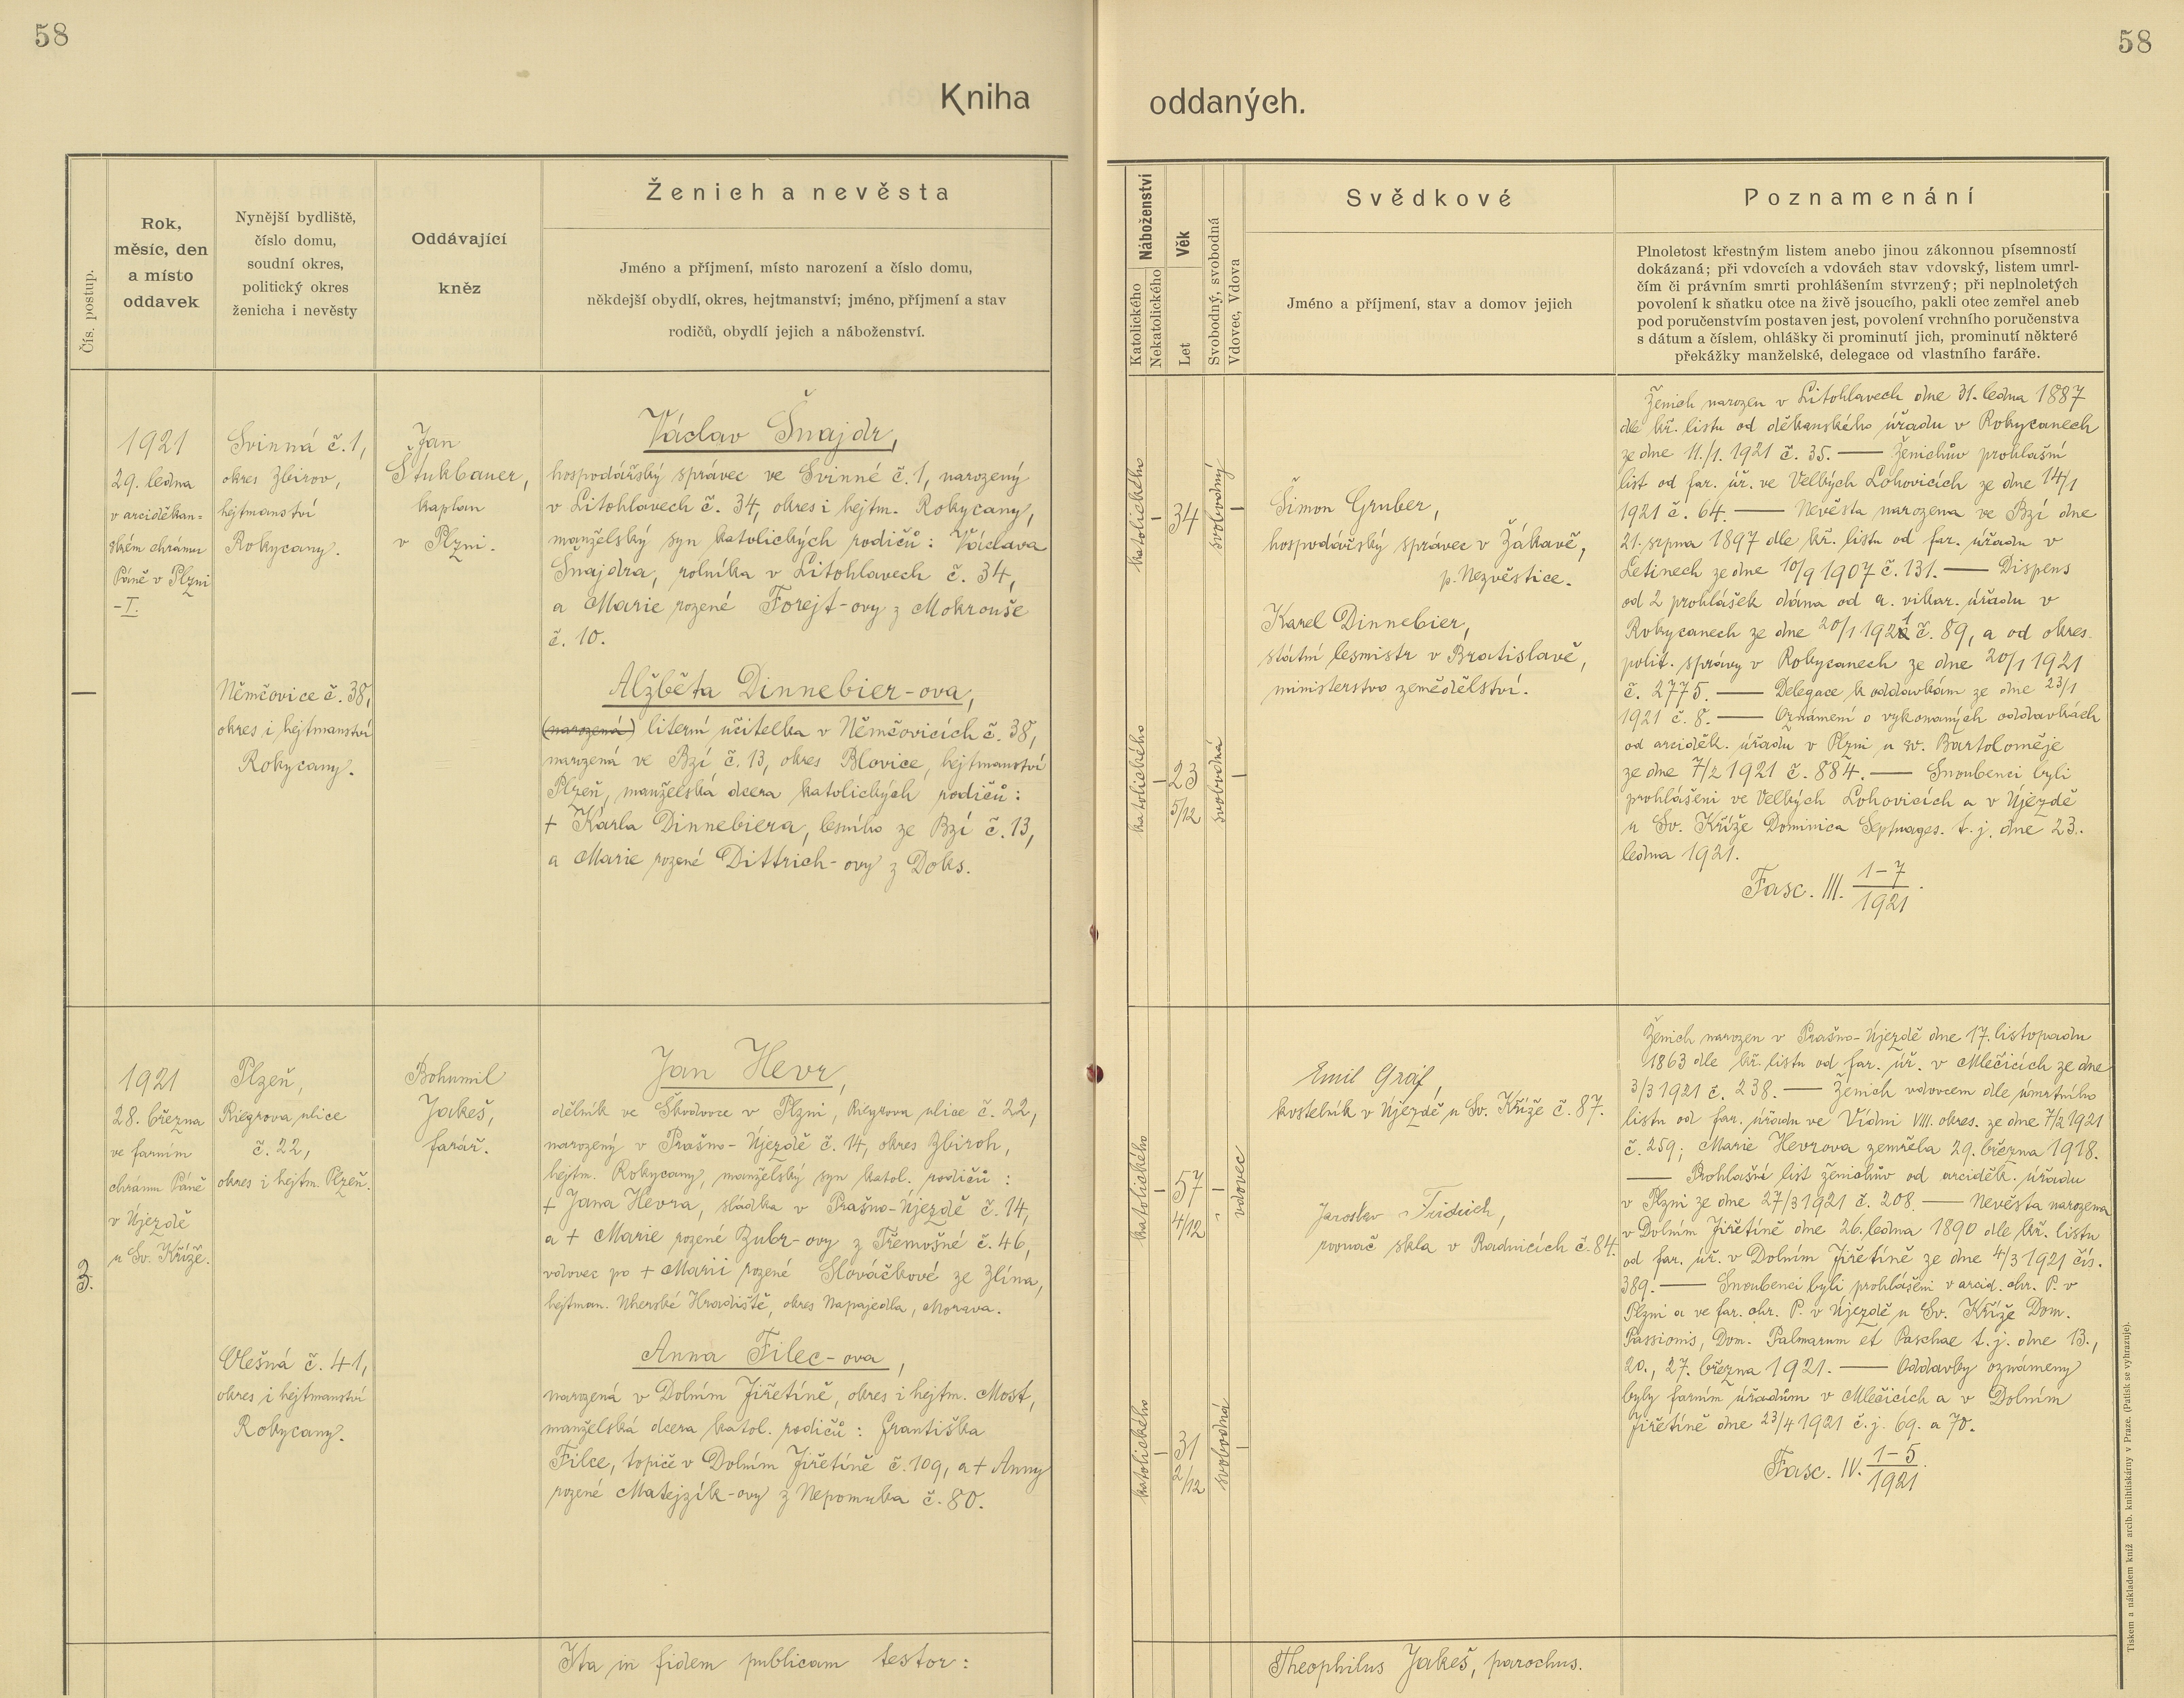 58
58
Kniha
oddaných.
Čís. postup.
Rok,
měsíc, den
a místo
oddavek
Nynější bydliště,
číslo domu,
soudní okres,
politický okres
ženicha i nevěsty
Oddávající
kněz
Ženich a nevěsta
Jméno a příjmení, místo narození a číslo domu,
někdejší obydlí, okres, hejtmanství; jméno, příjmení a stav
rodičů, obydlí jejich a náboženství.
Náboženství
Katolického
Nekatolického
Věk
Let
Svobodný, svobodná
Vdovec, Vdova
Svědkové
Jméno a příjmení, stav a domov jejich
Poznamenání
Plnoletost křestným listem anebo jinou zákonnou písemností
dokázaná; při vdovcích a vdovách stav vdovský, listem umrl-
čím či právním smrti prohlášením stvrzený; při neplnoletých
povolení k sňatku otce na živě jsoucího, pakli otec zemřel aneb
pod poručenstvím postaven jest, povolení vrchního poručenstva
s dátum a číslem, ohlášky či prominutí jich, prominutí některé
překážky manželské, delegace od vlastního faráře.
—
1921
29. ledna
v arciděkan=
ském chrámu
Páně v Plzni
-I.
Svinná č. 1,
okres Zbirov,
hejtmanství
Rokycany.
Němčovice č. 38,
okres i hejtmanství
Rokycany.
Jan
Štukbauer,
kaplan
v Plzni.
Václav Šnajdr,
hospodářský správec ve Svinné č. 1, narozený
v Litohlavech č. 34, okres i hejtm. Rokycany,
manželský syn katolických rodičů: Václava
Šnajdra, rolníka v Litohlavech č. 34,
a Marie rozené Forejt-ovy z Mokrouše
č. 10.
Alžběta Dinnebier-ova,
(narozená) literní učitelka v Němčovicích č. 38,
narozená ve Bzí č. 13, okres Blovice, hejtmanství
Plzeň, manželská dcera katolických rodičů:
+ Karla Dinnebiera, lesního ze Bzí č. 13,
a Marie rozené Dittrich-ovy z Doks.
katolického
—
34
svobodný
—
katolického
—
23
5/12
svobodná
—
Šimon Gruber,
hospodářský správec v Žákavě,
p. Nezvěstice.
Karel Dinnebier,
státní lesmistr v Bratislavě,
ministerstvo zemědělství.
Ženich narozen v Litohlavech dne 31. ledna 1887
dle kř. listu od děkanského úřadu v Rokycanech
ze dne 11./1. 1921 č. 35. — Ženichův prohlašní
list od far. úř. ve Velkých Lohovicích ze dne 14/1
1921 č. 64. — Nevěsta narozena ve Bzí dne
21. srpna 1897 dle kř. listu od far. úřadu v
Letinech ze dne 10/9 1907 č. 131. — Dispens
od 2 prohlášek dána od a. vikar. úřadu v
Rokycanech ze dne 20/1 1921 č. 89, a od okres.
polit. správy v Rokycanech ze dne 20/1 1921
č. 2775. — Delegace k oddavkám ze dne 23/1
1921 č. 8. — Oznámení o vykonaných oddavkách
od arciděk. úřadu v Plzni u sv. Bartoloměje
ze dne 7/2 1921 č. 884. — Snoubenci byli
prohlášeni ve Velkých Lohovicích a v Újezdě
u Sv. Kříže Dominica Septuages. t. j. dne 23.
ledna 1921.
Fasc. III. 1-7/1921.
3.
1921
28. března
ve farním
chrámu Páně
v Újezdě
u Sv. Kříže.
Plzeň,
Riegrova ulice
č. 22,
okres i hejtm. Plzeň.
Olešná č. 41,
okres i hejtmanství
Rokycany.
Bohumil
Jakeš,
farář.
Jan Hevr,
dělník ve Škodovce v Plzni, Riegrova ulice č. 22,
narozený v Prašno-Újezdě č. 14, okres Zbiroh,
hejtm. Rokycany, manželský syn katol. rodičů:
+ Jana Hevra, sládka v Prašno-Újezdě č. 14,
a + Marie rozené Zubr-ovy z Třemošné č. 46,
vdovec po + Marii rozené Slováčkové ze Zlína,
hejtman. Uherské Hradiště, okres Napajedla, Morava.
Anna Filec-ova,
narozená v Dolním Jiřetíně, okres i hejtm. Most,
manželská dcera katol. rodičů: Františka
Filce, topiče v Dolním Jiřetíně č. 109, a + Anny
rozené Matejzík-ovy z Nepomuka č. 80.
katolického
—
57
4/12
—
vdovec
katolického
—
31
2/12
svobodná
—
Emil Gráf,
kostelník v Újezdě u Sv. Kříže č. 87.
Jaroslav Fridrich,
rovnač skla v Radnicích č. 84.
Ženich narozen v Prašno-Újezdě dne 17. listopadu
1863 dle kř. listu od far. úř. v Mlečicích ze dne
3/3 1921 č. 238. — Ženich vdovcem dle úmrtního
listu od far. úřadu ve Vídni VIII. okres. ze dne 7/2 1921
č. 259; Marie Hevrova zemřela 29. března 1918.
— Prohlašní list ženichův od arciděk. úřadu
v Plzni ze dne 27/3 1921 č. 208. — Nevěsta narozena
v Dolním Jiřetíně dne 26. ledna 1890 dle kř. listu
od far. úř. v Dolním Jiřetíně ze dne 4/3 1921 čís.
389. — Snoubenci byli prohlášeni v arcid. chr. P. v
Plzni a ve far. chr. P. v Újezdě u Sv. Kříže Dom.
Passionis, Dom. Palmarum et Paschae t. j. dne 13.,
20., 27. března 1921. — Oddavky oznámeny
byly farním úřadům v Mlečicích a v Dolním
Jiřetíně dne 23/4 1921 č. j. 69. a 70.
Fasc. IV. 1-5/1921.
Ita in fidem publicam testor:
Theophilus Jakeš, parochus.
Tiskem a nákladem kníž. arcib. knihtiskárny v Praze. (Patisk se vyhrazuje).